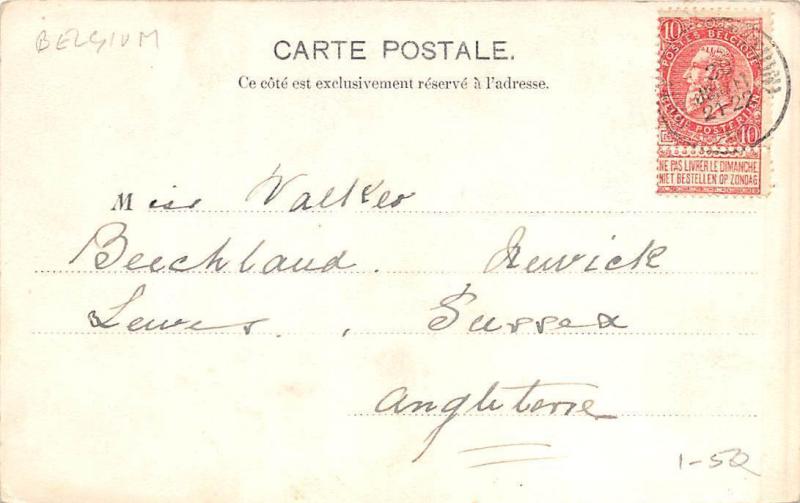 BELGIUM
CARTE POSTALE.
Ce côté est exclusivement réservé à l'adresse.
10 POSTES BELGIQUE
BELGIE POSTERIJEN 10
21-22
NE PAS LIVRER LE DIMANCHE
NIET BESTELLEN OP ZONDAG
Miss Walker
Beechland. Newick
Lewes. , Sussex
Angleterre
1-50